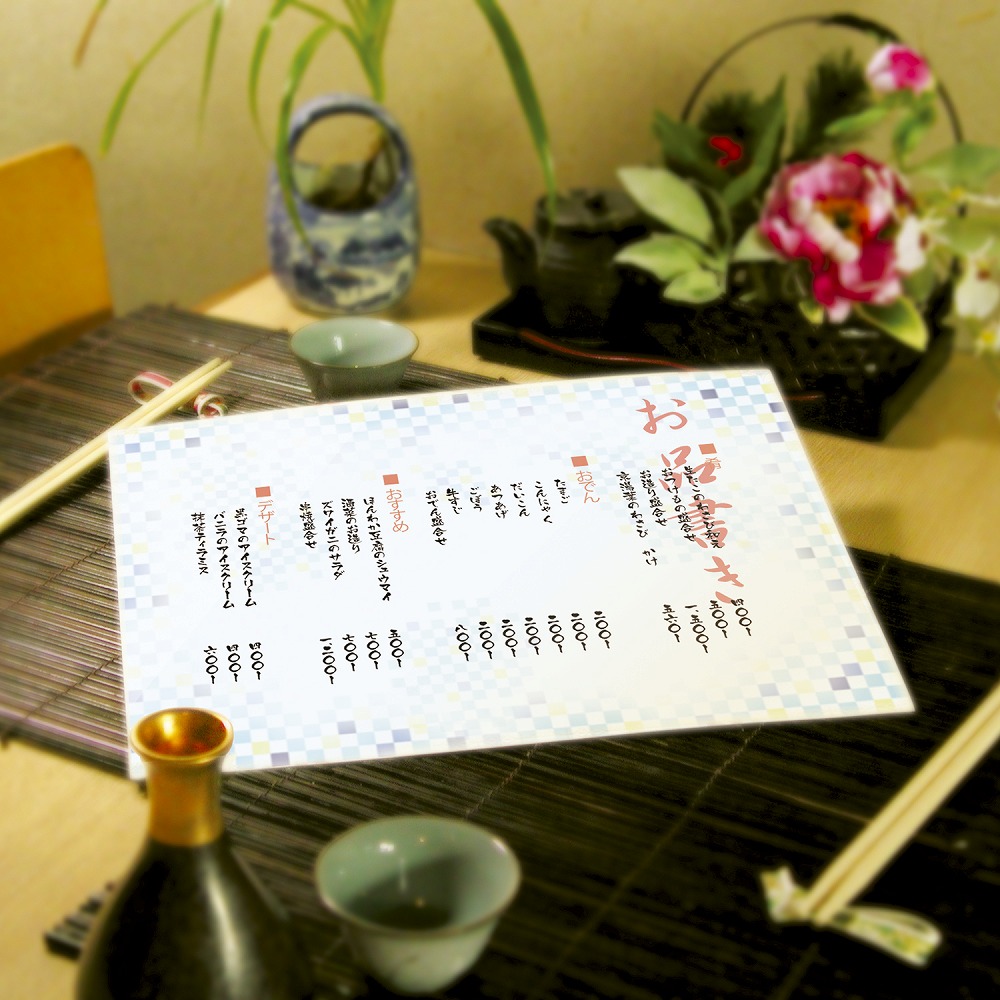 お品書き
■肴
生たこのわさび和え 四〇〇ー
おつけもの盛合せ 五〇〇ー
お造り盛合せ 一、五〇〇ー
京湯葉のわさび かけ 五六〇ー
■おでん
たまご 二〇〇ー
こんにゃく 二〇〇ー
だいこん 二〇〇ー
あつあげ 二〇〇ー
ごぼう 二〇〇ー
牛すじ 二〇〇ー
おでん盛合せ 八〇〇ー
■おすすめ
ほんわか豆腐のシュウマイ 五〇〇ー
湯葉のお造り 七〇〇ー
ズワイガニのサラダ 七〇〇ー
串焼盛合せ 一二〇〇ー
■デザート
黒ゴマのアイスクリーム 四〇〇ー
バニラのアイスクリーム 四〇〇ー
抹茶ティラミス 六〇〇ー